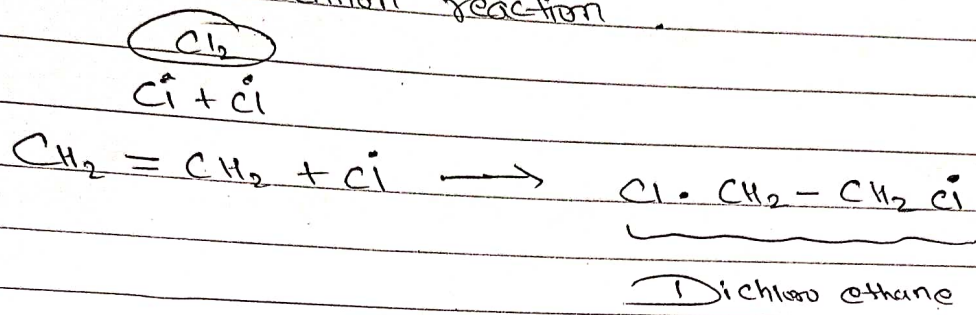 reaction
Cl₂
Cl• + Cl•
CH₂ = CH₂ + Cl• → Cl • CH₂ - CH₂ Cl•
Dichloro ethane